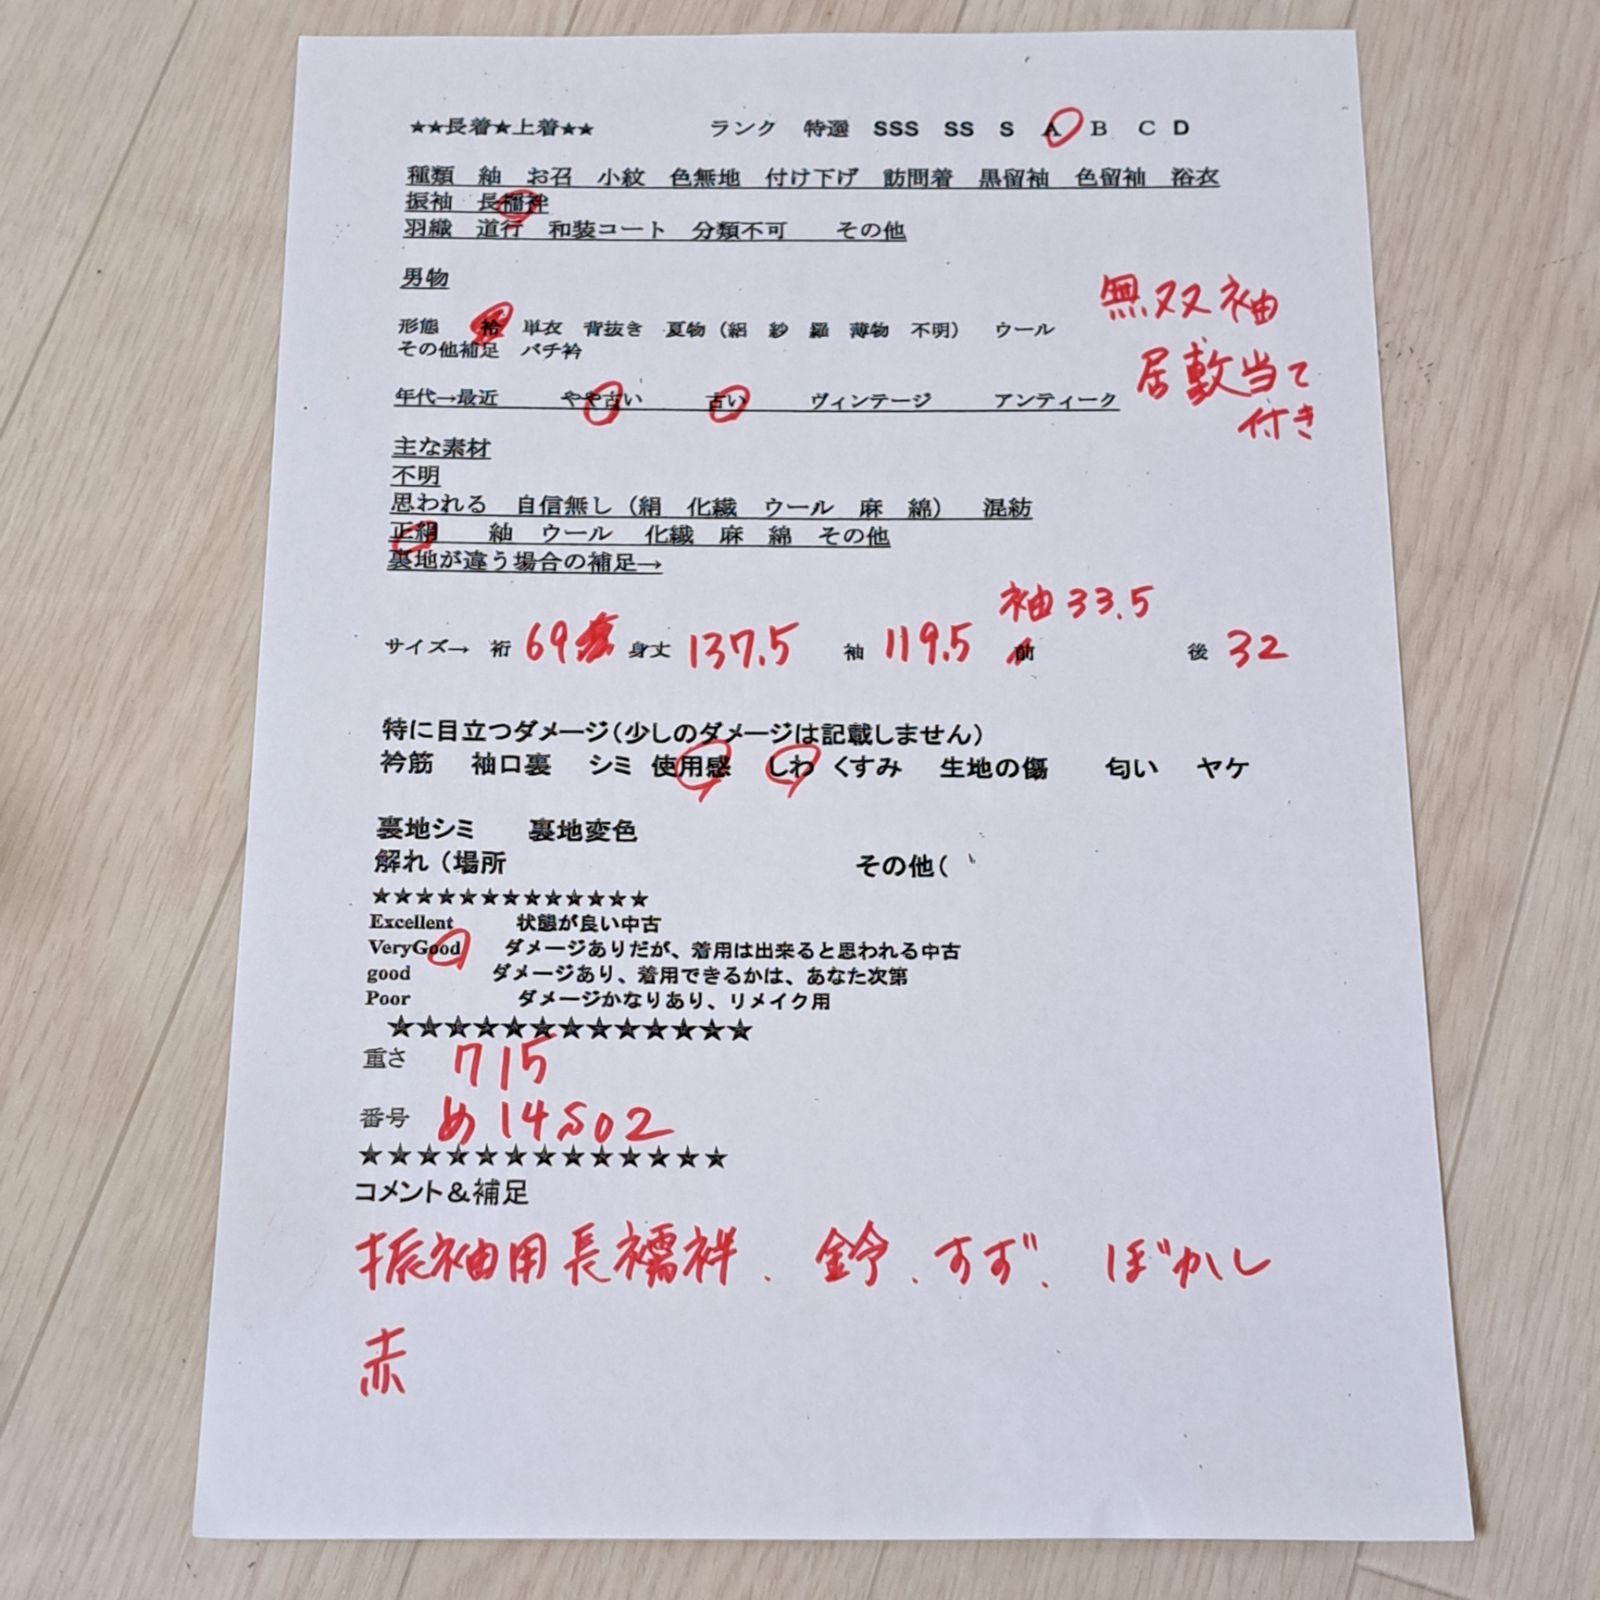 ★★長着★上着★★ ランク 特選 SSS SS S A B C D
種類 紬 お召 小紋 色無地 付け下げ 訪問着 黒留袖 色留袖 浴衣
振袖 長襦袢
羽織 道行 和装コート 分類不可 その他
男物
無双袖
形態 袷 単衣 背抜き 夏物（絽 紗 羅 薄物 不明） ウール
その他補足 バチ衿
居敷当て
付き
年代→最近 やや古い 古い ヴィンテージ アンティーク
主な素材
不明
思われる 自信無し（絹 化繊 ウール 麻 綿） 混紡
正絹 紬 ウール 化繊 麻 綿 その他
裏地が違う場合の補足→
袖33.5
サイズ→ 裄 69 身丈 137.5 袖 119.5 前 後 32
特に目立つダメージ（少しのダメージは記載しません）
衿筋 袖口裏 シミ 使用感 しわ くすみ 生地の傷 匂い ヤケ
裏地シミ 裏地変色
解れ（場所 その他（
★★★★★★★★★★★★★
Excellent 状態が良い中古
VeryGood ダメージありだが、着用は出来ると思われる中古
good ダメージあり、着用できるかは、あなた次第
Poor ダメージかなりあり、リメイク用
★★★★★★★★★★★★★
重さ 715
番号 め14S02
★★★★★★★★★★★★★
コメント＆補足
振袖用長襦袢、鈴、すず、ぼかし
赤